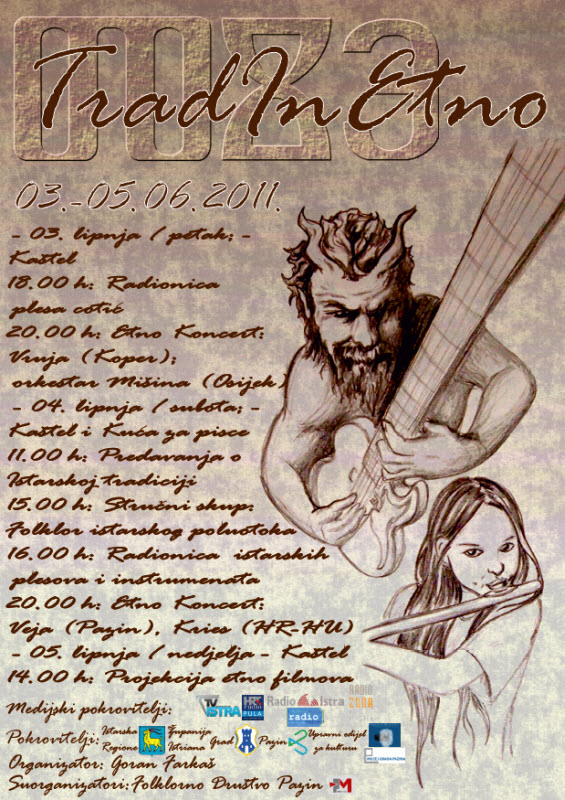 TradInEtno
03.-05.06.2011.
- 03. lipnja / petak; -
Kaštel
18.00 h: Radionica
plesa cotić
20.00 h: Etno Koncert:
Vruja (Koper);
orkestar Mišina (Osijek)
- 04. lipnja / subota; -
Kaštel i Kuća za pisce
11.00 h: Predavanja o
Istarskoj tradiciji
15.00 h: Stručni skup:
Folklor istarskog poluotoka
16.00 h: Radionica istarskih
plesova i instrumenata
20.00 h: Etno Koncert:
Veja (Pazin), Kries (HR-HU)
- 05. lipnja / nedjelja - Kaštel
14.00 h: Projekcija etno filmova
Medijski pokrovitelji: TV ISTRA HRT PULA Radio Istra RADIO ZONA
radio
Pokrovitelji: Istarska Županija
Regione Istriana Grad Pazin Upravni odijel
za kulturu
Organizator: Goran Farkaš
Suorganizatori: Folklorno Društvo Pazin